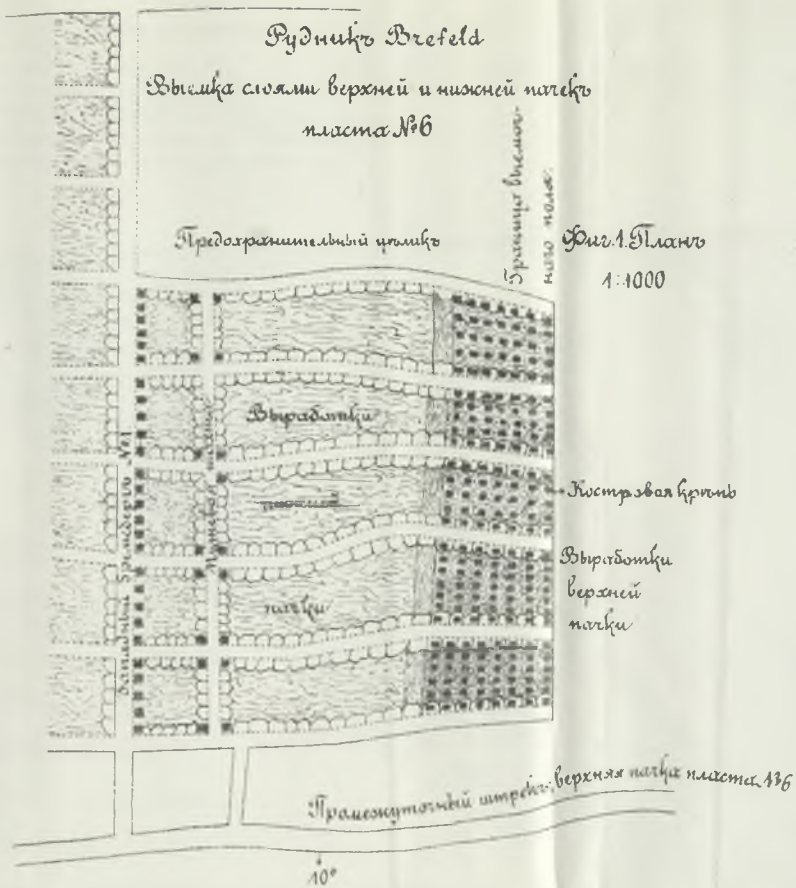 Рудникъ Brefeld
Выемка слоями верхней и нижней пачекъ
пласта №6
Граница выемоч-
наго поля.
Предохранительный цѣликъ
Фиг.1. Планъ
1:1000
Выработки
нижней
пачки
Костровая крѣпь
Выработки
верхней
пачки
Западный бремсбергъ №1
Промежуточный штрекъ; верхняя пачка пласта №6
10°